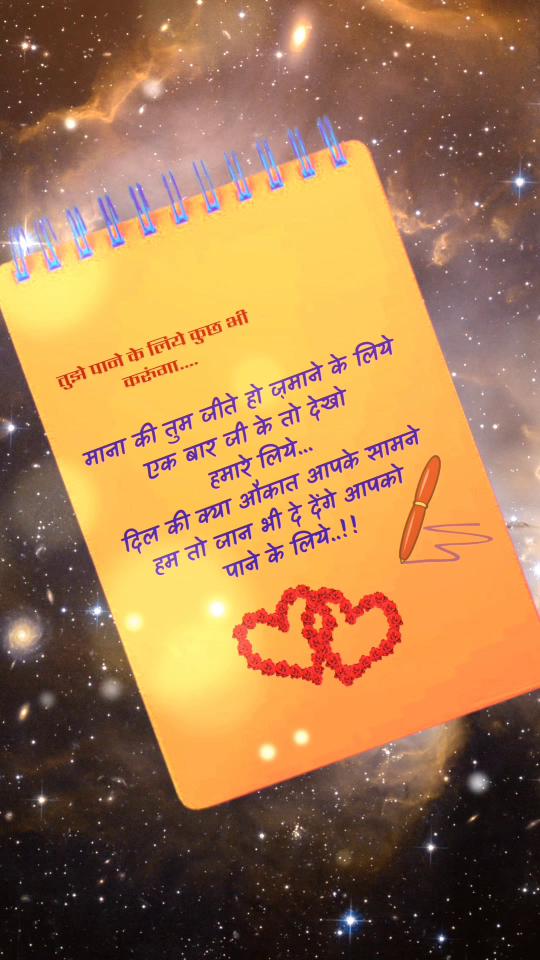 तुझे पाने के लिये कुछ भी
करुंगा....
माना की तुम जीते हो ज़माने के लिये
एक बार जी के तो देखो
हमारे लिये...
दिल की क्या औकात आपके सामने
हम तो जान भी दे देंगे आपको
पाने के लिये..!!